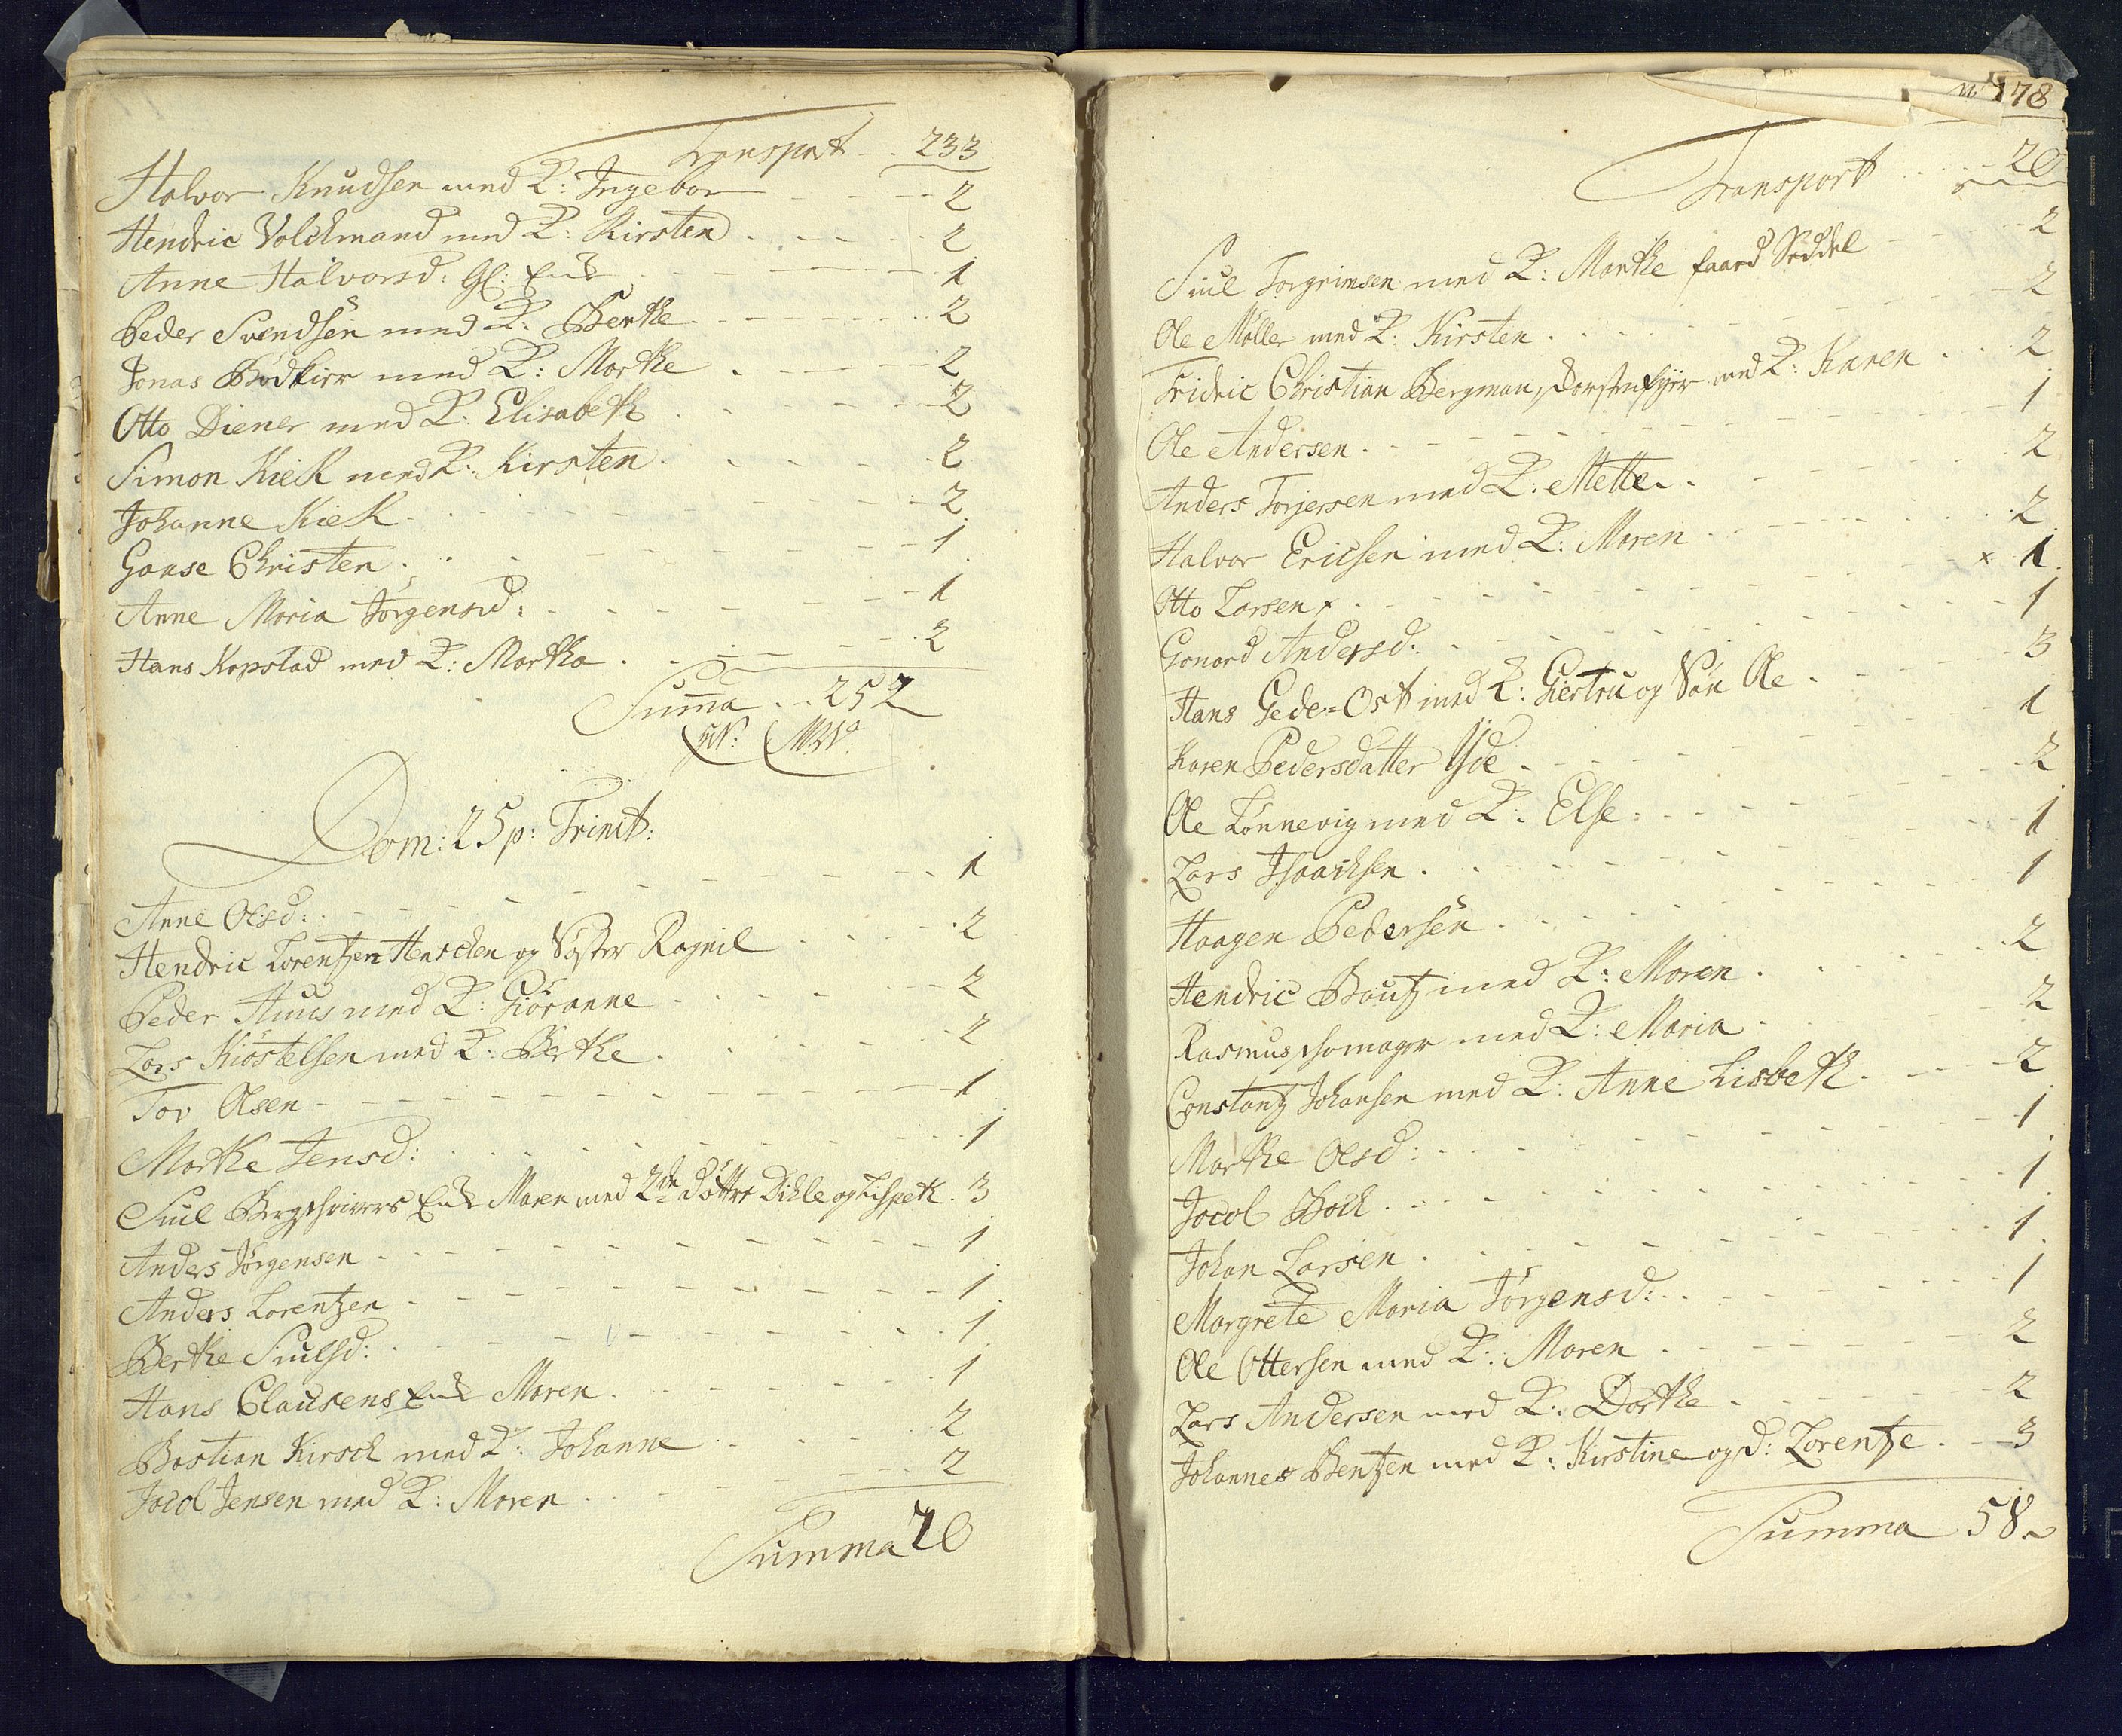 Transport - . 233
Halvor Knudsen med K: Ingebor - - - - 2
Hendric Volckmand med K: Kirsten . - - - . 2
Anne Halvorsd: Gl: Enke - - - - - 1
Peder Svendsen med K: Berthe - - - - - 2
Jonas Bödkier med K: Marthe . - - - - 2
Otto Diener med K: Elisabeth . - - - - 2
Simon Kiek med K: Kirsten . - - - - 2
Johanne Kiek . - - - - - - 2
Gonse Christen . - - - - - - 1
Anne Maria Jörgensd: - - - - - - 1
Hans Kopstad med K: Martha . - - - - 2
Summa . . 252
Dom: 25 p: Trinit:
Anne Olsd: . - - - - - - 1
Hendric Lorentzen Henschen og Söster Ragnil - - - 2
Peder Huus med K: Giöranne . - - - - 2
Lars Kiöstelsen med K: Berthe . - - - - 2
Tov Olsen - - - - - - - 1
Marthe Jensd: . - - - - - - 1
Siul Bergskrivers Enke Maren med 2de Döttre Dihle og Lispeth . 3
Anders Jörgensen - - - - - - - 1
Anders Lorentzen - - - - - - - 1
Berthe Siulsd: . - - - - - - 1
Hans Clausens Enke Maren . - - - - - 1
Bastian Kirsch med K: Johanne - - - - 2
Jacob Jensen med K: Maren . - - - - 2
Summa 20
178
Transport . . . 20
Siul Torgrimsen med K: Marthe faaed Seddel - - - 2
Ole Möller med K: Kirsten . - - - - - 2
Fridric Christian Bergman, med K: Karen . . . 2
Ole Andersen . - - - - - - - 1
Anders Torjersen med K: Mette . - - - - 2
Halvor Ericksen med K: Maren . - - - - 2
Otto Larsen x . - - - - - - x 1
Gonord Andersd: . - - - - - - 1
Hans Gede-Ost med K: Giertru og Sön Ole . - - - 3
Karen Pedersdatter Yde . - - - - - 1
Ole Lönnevig med K: Else . - - - - - 2
Lars Isaachsen . - - - - - - 1
Haagen Pedersen . - - - - - - 1
Hendric Bautz med K: Maren . - - - - 2
Rasmus skomager med K: Maria . - - - - 2
Constantz Johansen med K: Anne Lisbeth . - - - 2
Marthe Olsd: . - - - - - - 1
Jacob Bock . - - - - - - 1
Johan Larsen . - - - - - - 1
Margrete Maria Jörgensd: . - - - - - 1
Ole Ottersen med K: Maren . - - - - 2
Lars Andersen med K: Dorthe . - - - - 2
Johannes Bentzen med K: Kirstine og d: Lorentze . - - 3
Summa 58.